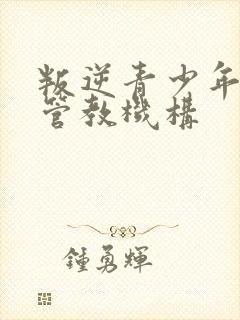 叛逆青少年
管教機構
鍾勇輝